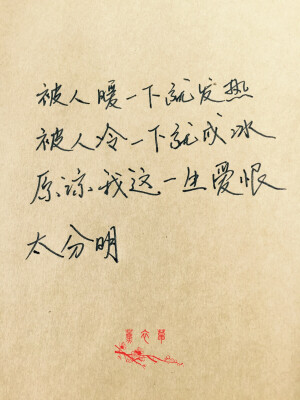 被人暖一下就发热
被人冷一下就成冰
原谅我这一生爱恨
太分明